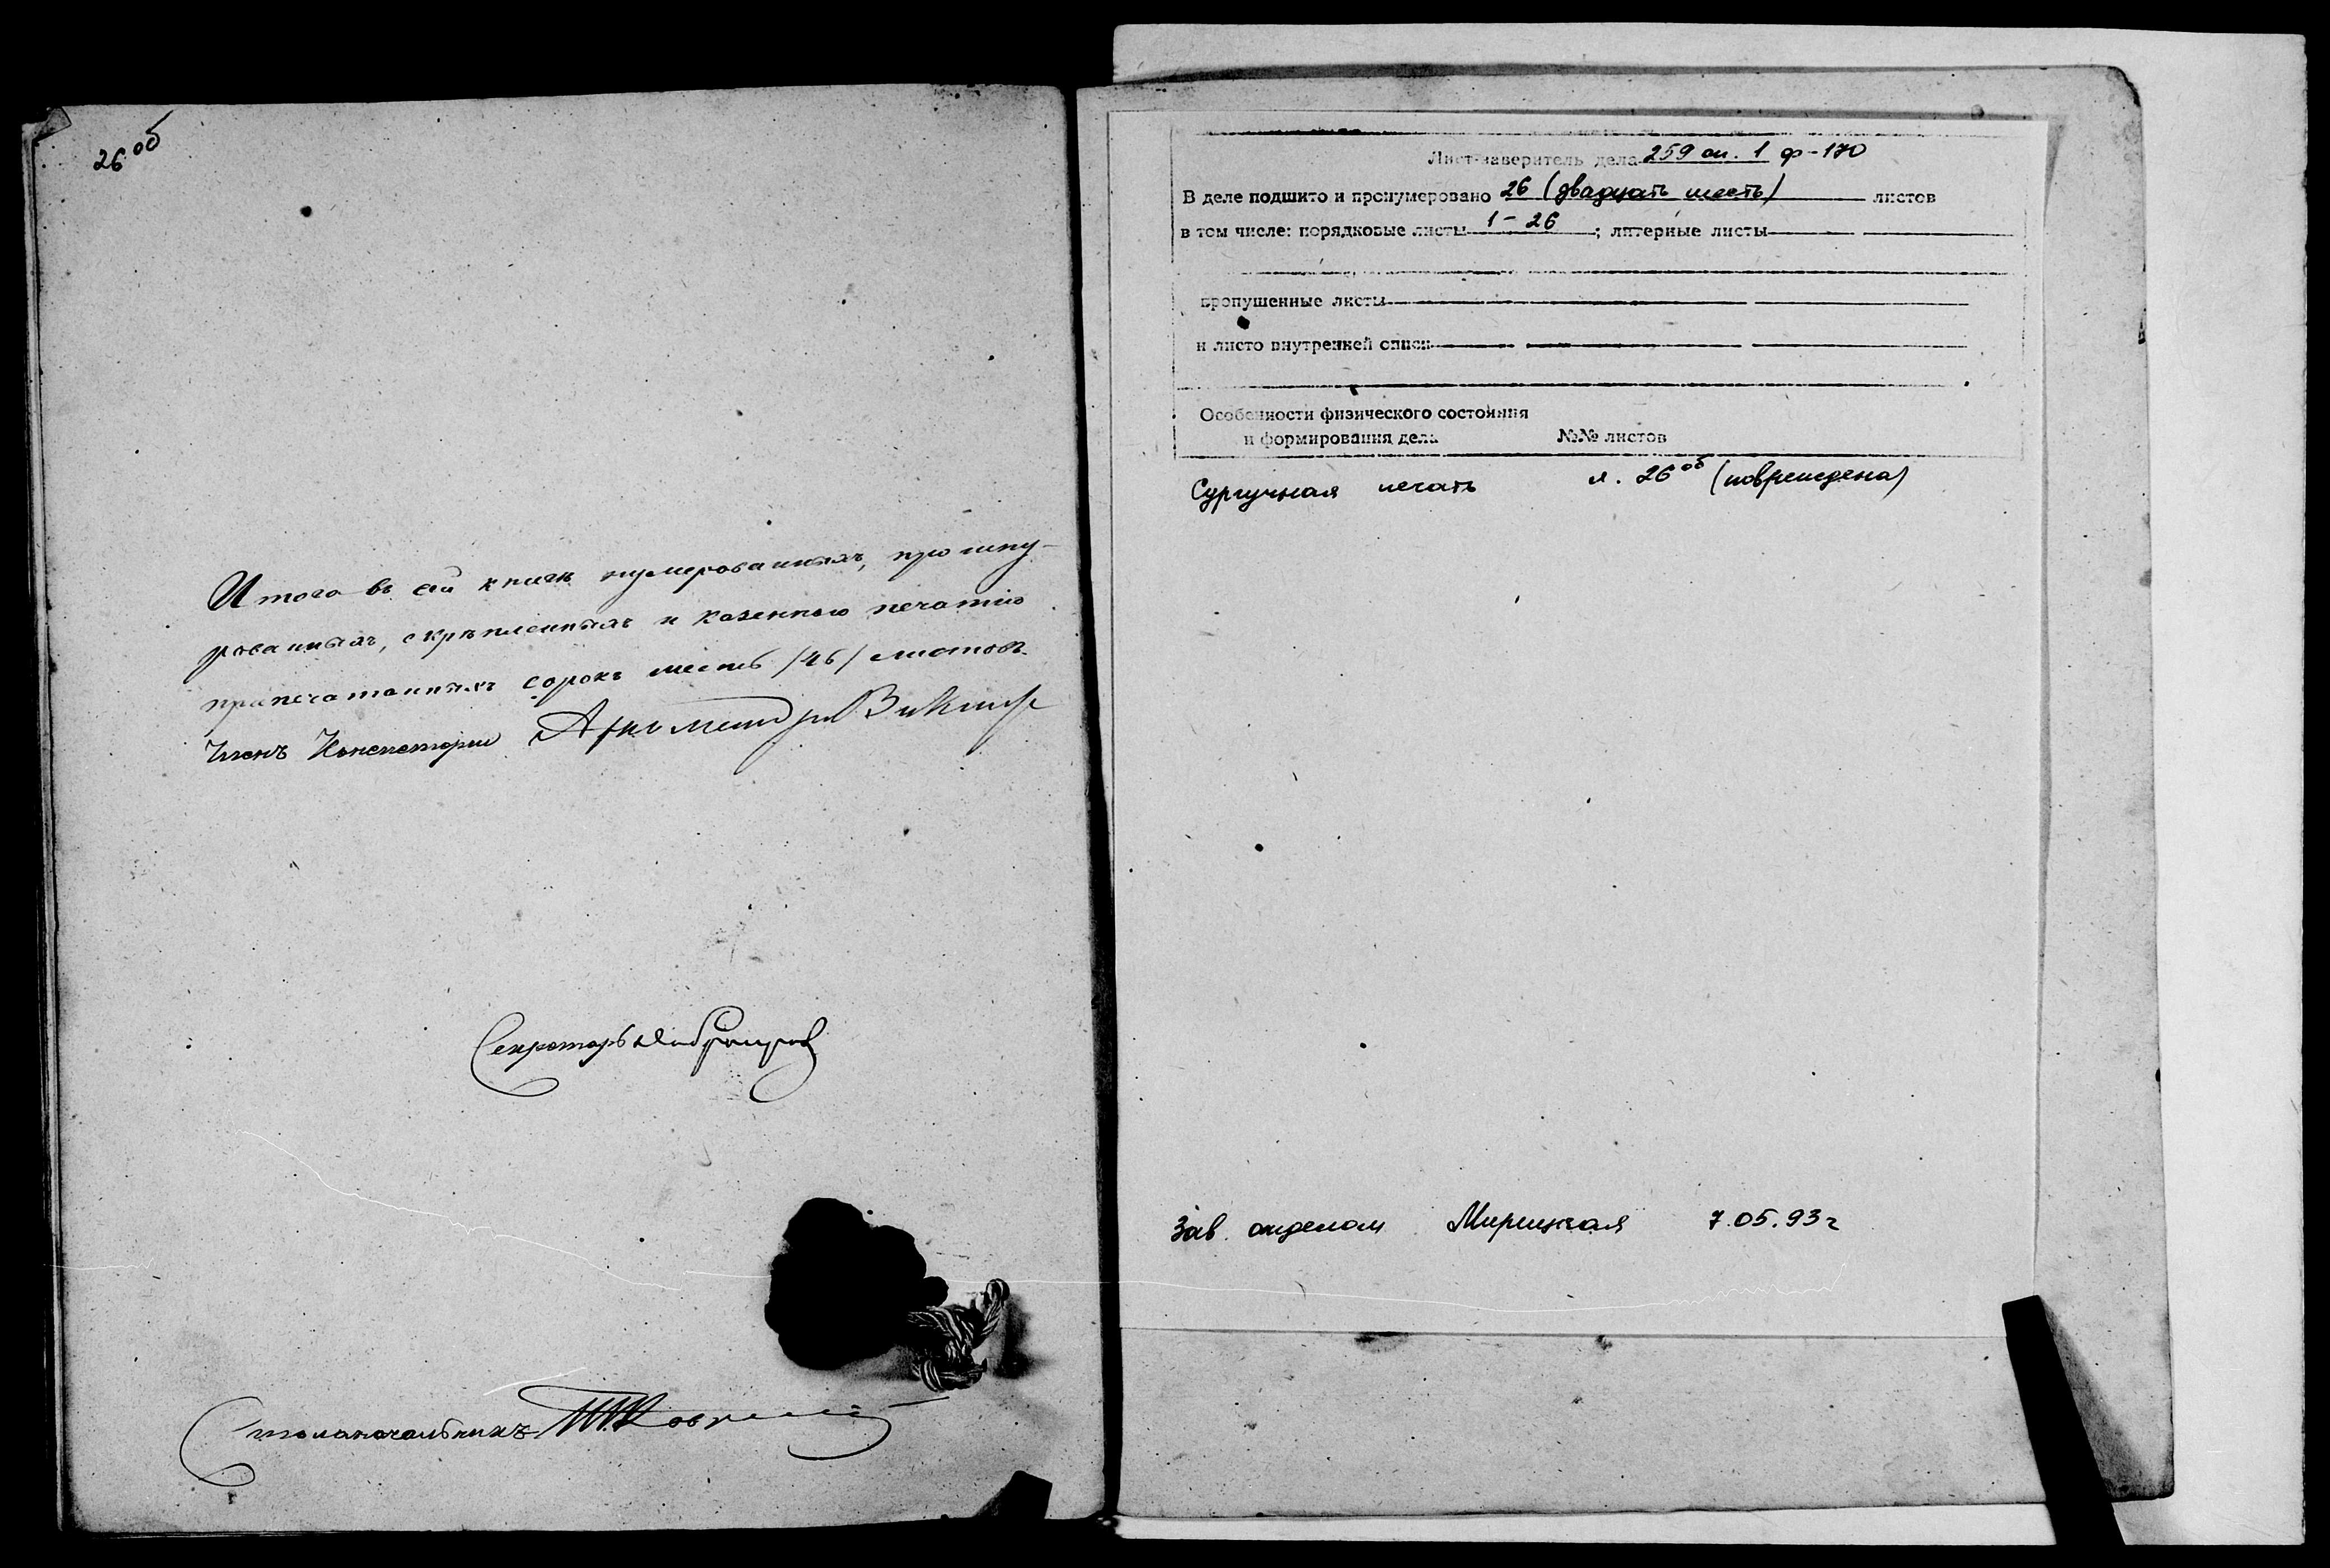 26 об
Итого въ сей книгѣ нумерованныхъ, прошну-
рованныхъ, скрѣпленныхъ и казенною печатью
припечатанныхъ сорокъ шесть /46/ листовъ.
Членъ Консисторіи Архимандритъ Викторъ
Секретарь
Столоначальникъ
Лист-заверитель дела 259 оп. 1 ф-170
В деле подшито и пронумеровано 26 (двадцать шесть) листов
в том числе: порядковые листы 1-26 ; литерные листы
пропушенные листы
и листо внутренней описи
Особенности физического состояния
и формирования дела №№ листов
Сургучная печать л. 26 об (повреждена)
Зав. отделом Мирицкая 7.05.93 г